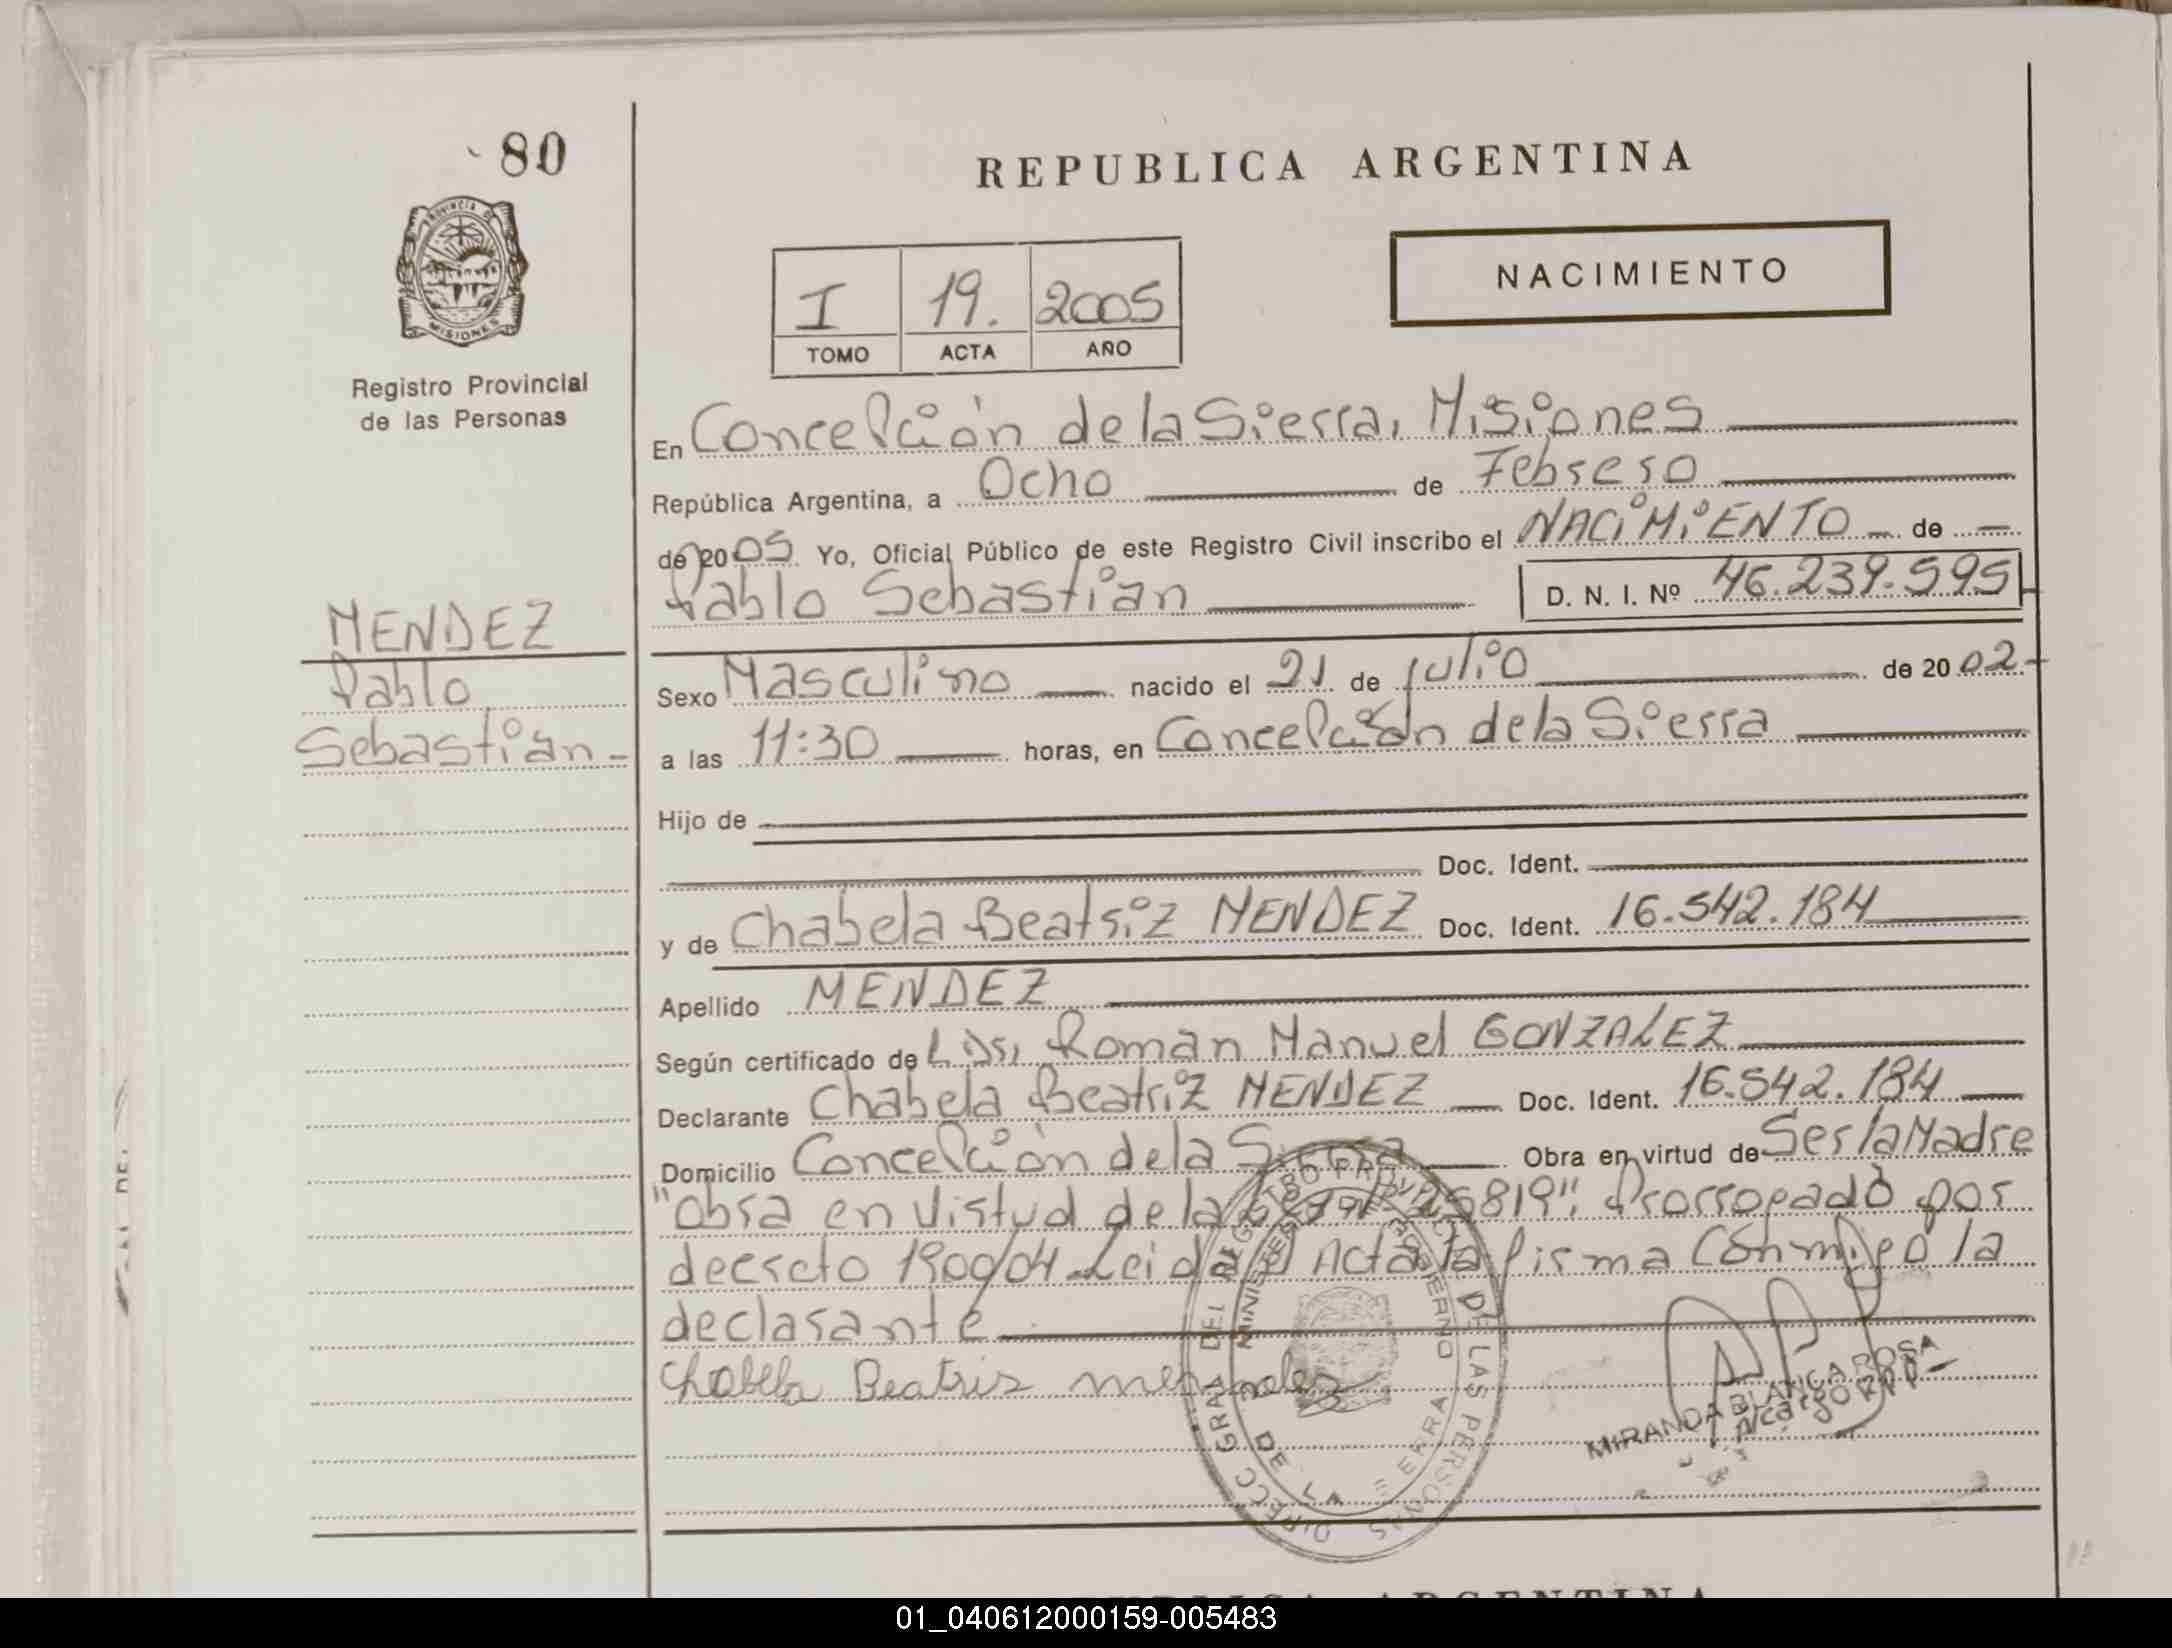 80
REPUBLICA ARGENTINA
PROVINCIA DE
MISIONES
I 19. 2005
TOMO ACTA AÑO
NACIMIENTO
Registro Provincial
de las Personas
En Concepción de la Sierra, Misiones
República Argentina, a Ocho de Febrero
de 2005 Yo, Oficial Público de este Registro Civil inscribo el NACIMIENTO de
Pablo Sebastián D. N. I. Nº 46.239.595
MENDEZ
Pablo
Sebastián
Sexo Masculino nacido el 21 de julio de 2002
a las 11:30 horas, en Concepción de la Sierra
Hijo de
Doc. Ident.
y de Chabela Beatriz MENDEZ Doc. Ident. 16.542.184
Apellido MENDEZ
Según certificado de Roman Manuel GONZALEZ
Declarante Chabela Beatriz MENDEZ Doc. Ident. 16.542.184
Domicilio Concepción de la Sierra Obra en virtud de Ser la Madre
"Obra en virtud de la Ley Nº 25819". Prorrogado por
decreto 1900/04. Leida el Acta la firma conmigo la
declarante
Chabela Beatris
DIRECC GRAL DEL REGISTRO PROVINCIAL DE LAS PERSONAS
MINISTERIO DE GOBIERNO
DE LA
MIRANDA BLANCA ROSA
A cargo RPP
REPUBLICA ARGENTINA
01_040612000159-005483